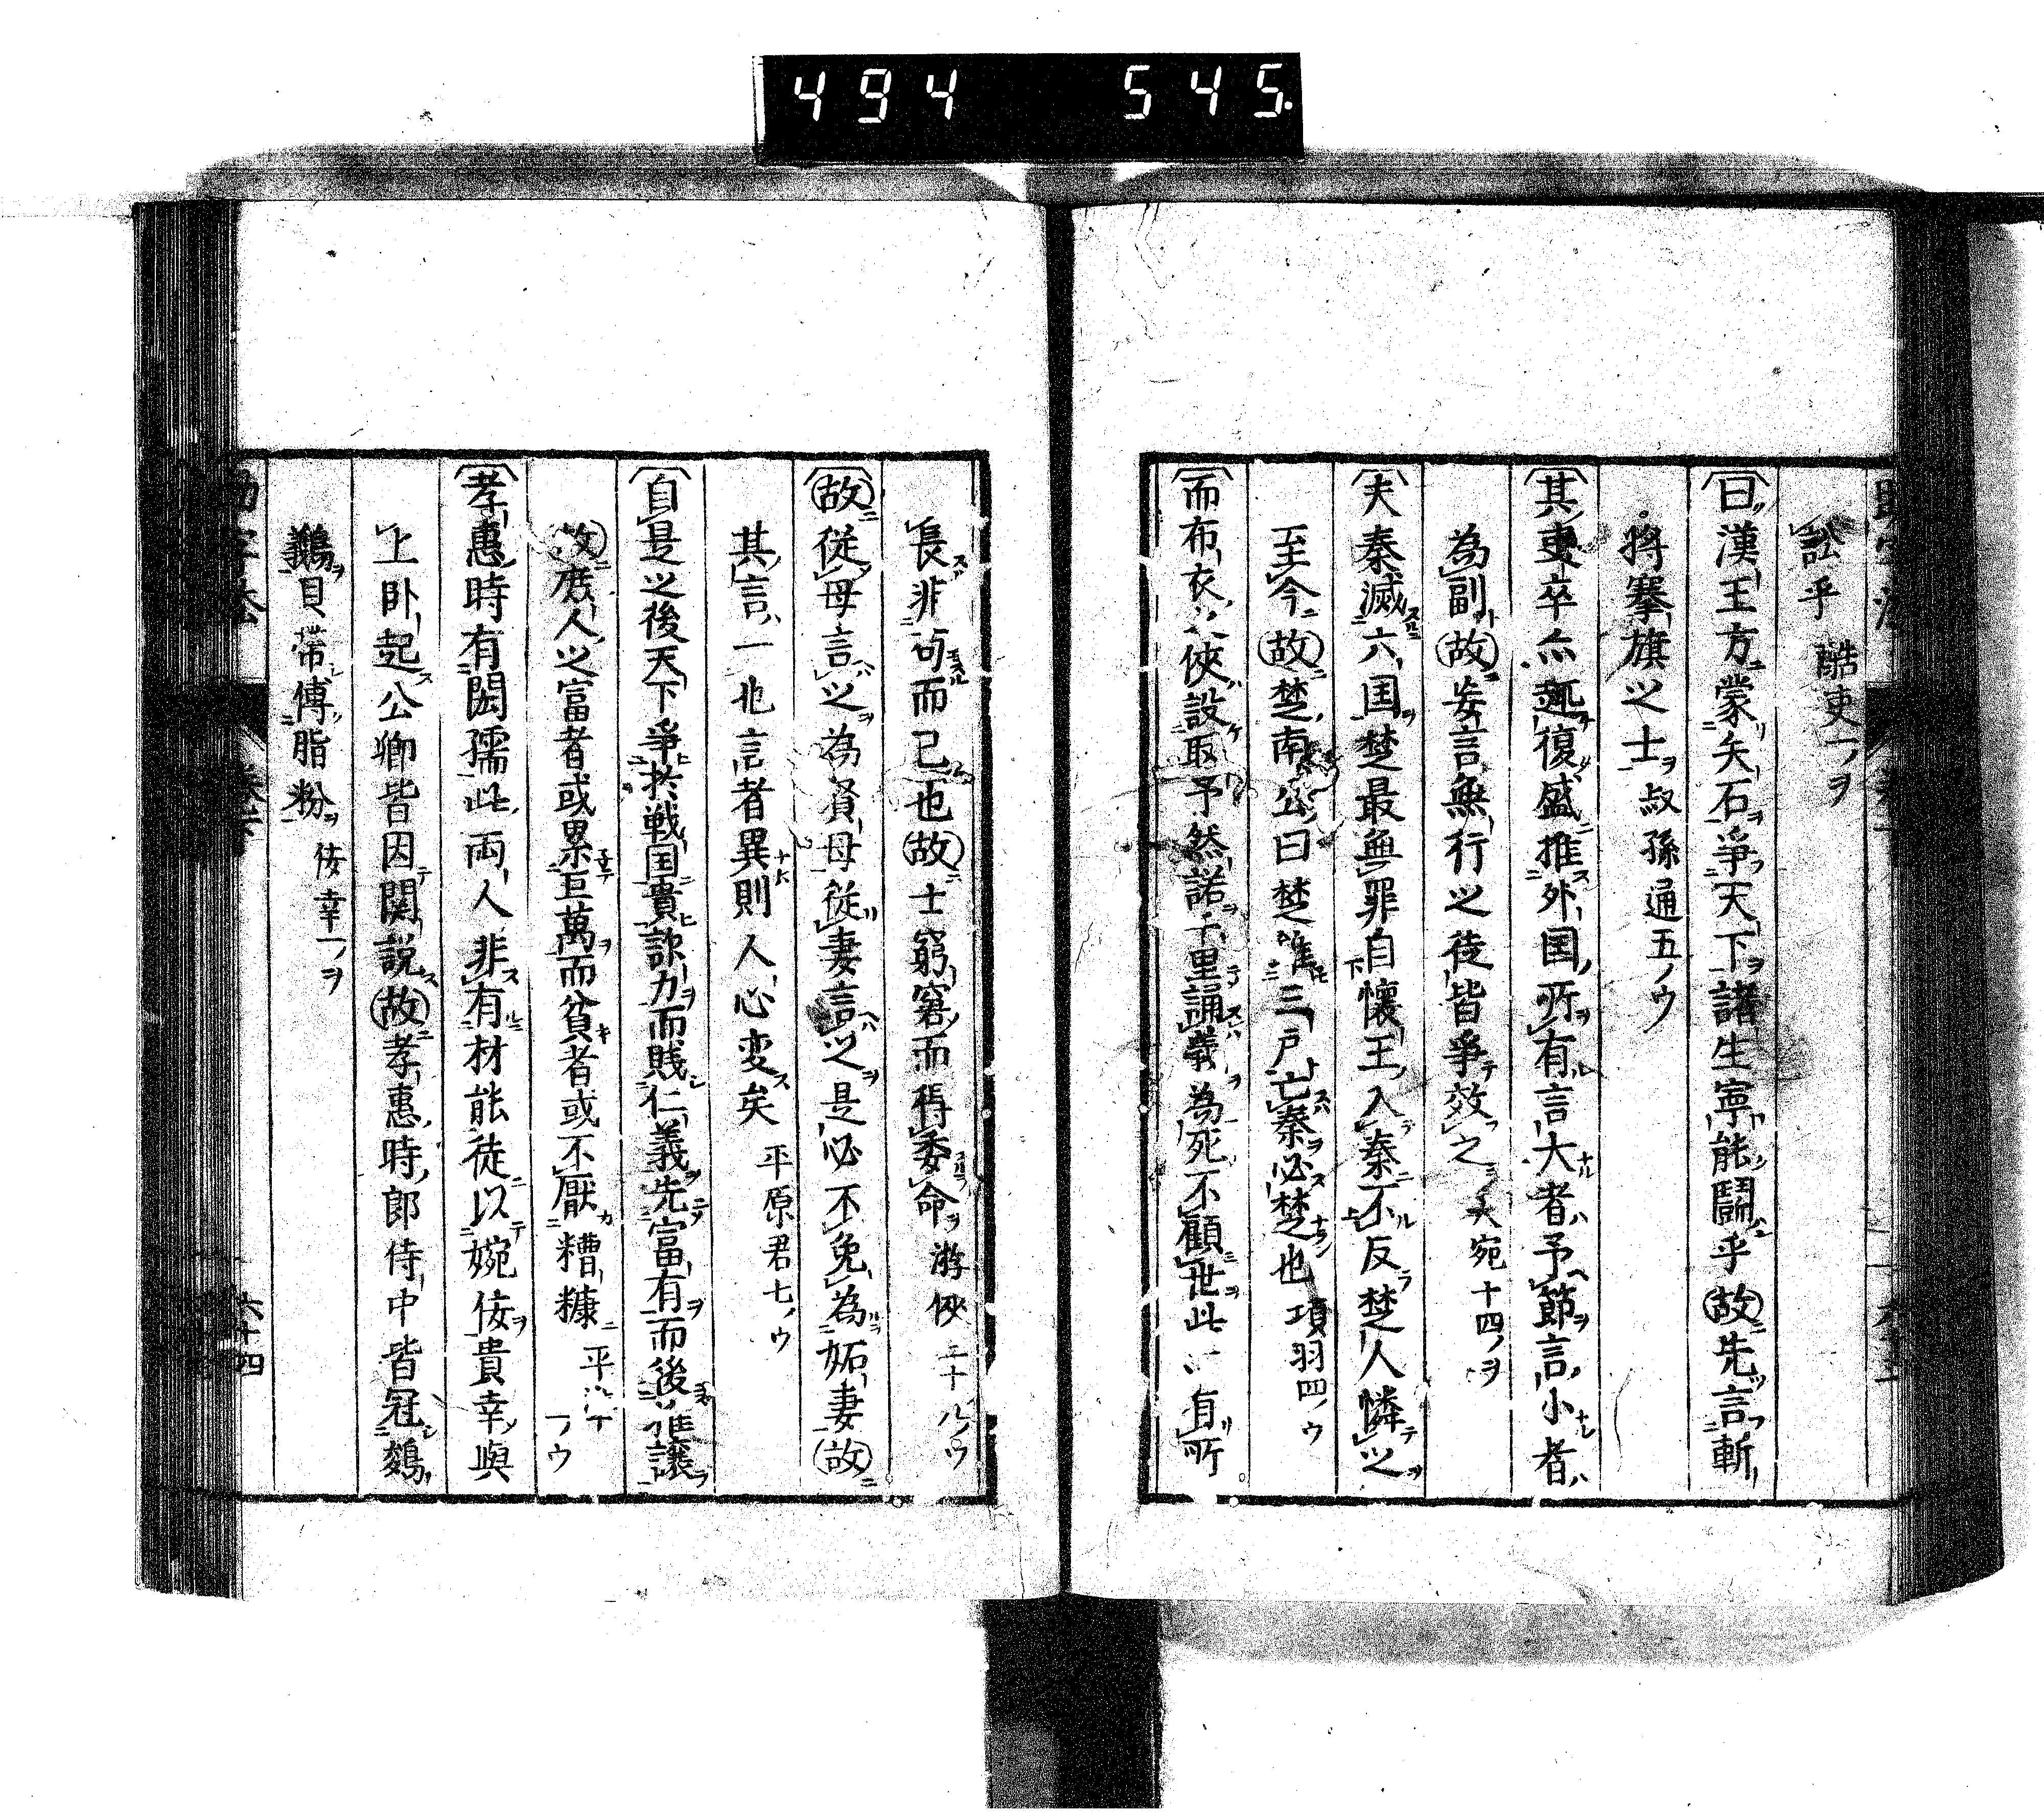 494 545
訟乎 酷吏一ノヲ
曰漢王方蒙矢石爭天下諸生寧能鬪乎故先言斬
将搴旗之士 叔孫通五ノウ
其吏卒亦輒復盛推外国所有言大者予節言小者
為副故妄言無行之徒皆爭效之 大宛十四ノヲ
夫秦滅六国楚最無罪自懐王入秦不反楚人憐之
至今故楚南公曰楚雖三戸亡秦必楚也 項羽四ノウ
而布衣之俠設取予然諾千里誦義為死不顧世此 有所
長非苟而已也故士窮窘而得委命 游俠
故従母言之為賢母従妻言之是必不免為妬妻故
其言一也言者異則人心変矣 平原君七ノウ
自是之後天下爭於戦国貴詐力而賎仁義先富有而後推譲
故庶人之富者或累巨萬而貧者或不厭糟糠 平準 一ノウ
孝惠時有閎孺此両人非有材能徒以婉佞貴幸與
上卧起公卿皆因関説故孝惠時郎侍中皆冠鵕
鸃貝帯傅脂粉 佞幸一ノヲ
六十四